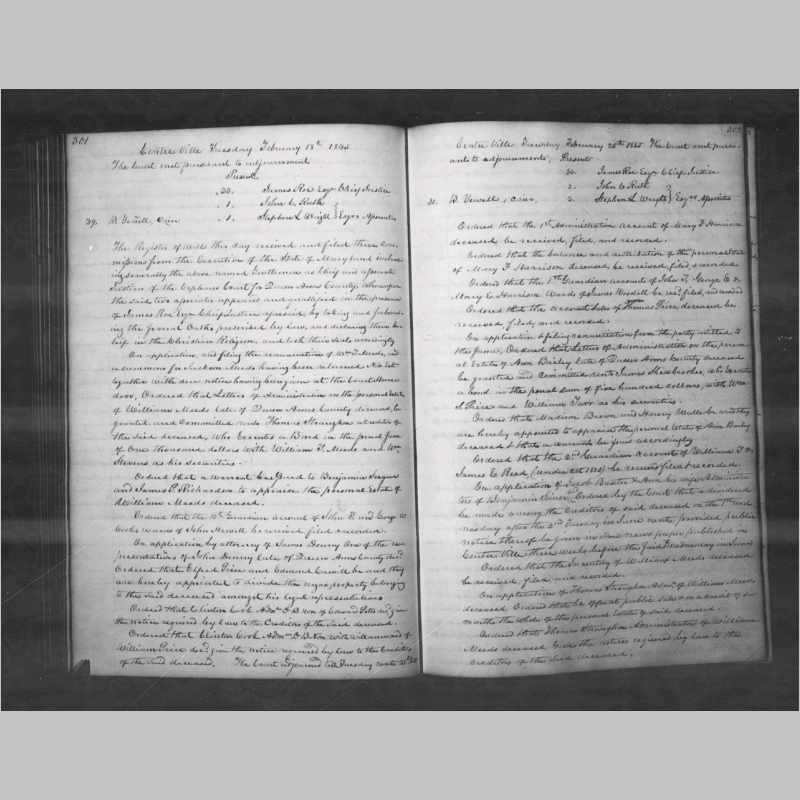 301
Centre Ville Tuesday February 18th 1845
The Court met pursuant to adjournment
Present
20. James Roe Esqr Chief Justice
1. John C Ruth
39. R. Vewell, Crier 1. Stephen L Wright } Esqrs Associates
The Register of Wills this day received and filed three Com
missions from the Executive of the State of Maryland
severally the above named Gentlemen as Chief and associate
Justices of the Orphans Court for Queen Anns County, whereupon
the said two associates appeared and qualified in the presence
of James Roe Esqr Chief Justice aforesaid, by taking and subscrib
ing the several Oaths prescribed by law, and declaring their be
lief in the Christian Religion, and took their seats accordingly
On application, and filing the renunciation of Wm
a summons for Jackson Meeds having been returned
together with due notice having been given at the Court House
door, Ordered that Letters of Administration on the personal estate
of William Meeds late of Queen Anns County deceased, be
granted and committed unto Thomas creditor of
the said deceased, who executes a Bond in the penal sum
of One thousand dollars with William F. Meeds and Wm
Stevens as his securities.
Ordered that a warrant be issued to Benjamin
and James P. Richardson to appraise the personal Estate of
William Meeds deceased.
Ordered that the Guardian account of John and George W
wards of John Newell be received filed & recorded
On application by attorney of James Denny one of the re
presentatives of John Denny late of Queen Anns County decd
Ordered that Price and Edward be and they
are hereby appointed to divide the negro property belonging
to the said deceased amongst his legal representatives
Ordered that Clinton Cook Admr D B Non of Edward decd give
the notice required by law to the Creditors of the said deceased
Ordered that Clinton Cook Admr D B Non with will annexed of
William Price decd give the notice required by law to the Creditors
of the said deceased. The Court adjourned till Tuesday next 25th
302
Centre Ville, Tuesday, February 25th 1845 The Court met pursu
ant to adjournment, Present
20. James Roe Esqr Chief Justice
2. John C Ruth
R. Vewell, Crier, 2. Stephen L Wright } Esqrs Associates
Ordered that the 1st Administration account of Mary F Harrison
deceased be received, filed, and recorded.
Ordered that the balance and distribution of the personal Estate
of Mary F Harrison deceased, be received, filed & recorded
Ordered that the 1st Guardian account of John T, George E &
Mary C Harrison Wards of James be recd, filed, and recorded
Ordered that the account Sales of Thomas Price deceased be
received, filed, and recorded.
On application & filing renunciation from the party entitled to
the same, Ordered that Letters of Administration on the person
al Estate of Ann Bailey late of Queen Anns County deceased
be granted and committed unto James who executes
a bond in the penal sum of five hundred dollars, with Wm
Price and William Tarr as his securities.
Ordered that Madison Brown and Henry be and they
are hereby appointed to appraise the personal estate of Ann Bailey
deceased & that a warrant be issd accordingly
Ordered that the 2nd Guardian accounts of William T &
James C Reed, be received filed & recorded.
On application of Jacob & Ann his wife Administra
tors of Benjamin Ordered by the Court that a dividend
be made among the Creditors of said deceased on the 1st Wed
nesday after the 2nd Tuesday in June next, provided public
notice thereof be given in the news paper published in
Centre Ville three weeks before the first Wednesday in June
Ordered that the Inventory of William Meeds deceased
be received, filed, and recorded.
On application of Thomas Admr of William Meeds
deceased Ordered that he offer at public sale on a credit of six
months the whole of the personal Estate of said deceased.
Ordered that Thomas Administrator of William
Meeds deceased give the notice required by law to the
Creditors of the said deceased.